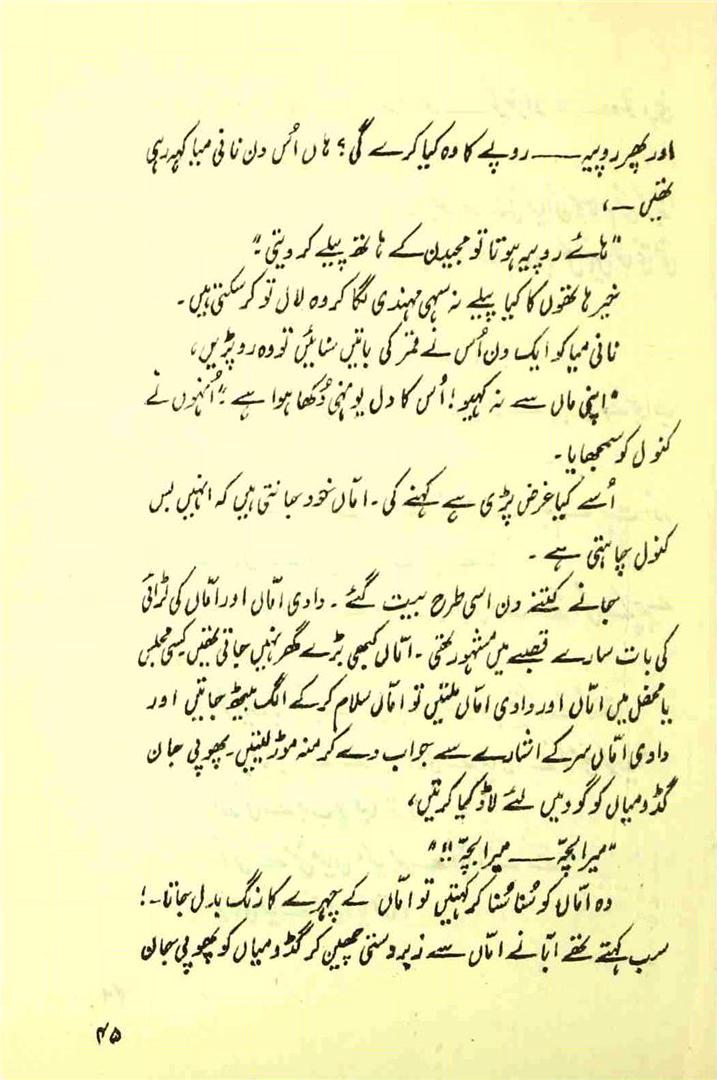 اور پھر روپیہ —— روپے کا وہ کیا کرے گی؟ ہاں اُس دن نانی میا کہہ رہی
تھیں —،
"ہائے روپیہ ہوتا تو مجیدن کے ہاتھ پیلے کر دیتی۔"
خیر ہاتھوں کا کیا پیلے نہ سہی مہندی لگا کر وہ لال تو کر سکتی ہیں۔
نانی میا کو ایک دن اُس نے قمر کی باتیں سنائیں تو وہ رو پڑیں،
"اپنی ماں سے نہ کہیو! اُس کا دل یونہی دُکھا ہوا ہے۔" اُنہوں نے
کنول کو سمجھایا۔
اُسے کیا غرض پڑی ہے کہنے کی۔ امّاں خود جانتی ہیں کہ انہیں بس
کنول چاہتی ہے۔
جانے کتنے دن اسی طرح بیت گئے۔ دادی امّاں اور امّاں کی لڑائی
کی بات سارے قصبے میں مشہور تھی۔ امّاں کبھی بڑے گھر نہیں جاتی تھیں کیسی مجلس
یا محفل میں امّاں اور دادی امّاں ملتیں تو امّاں سلام کرکے الگ بیٹھ جاتیں اور
دادی امّاں سر کے اشارے سے جواب دے کر منہ موڑ لیتیں۔ پھوپی جان
گڈو میاں کو گود میں لئے لاڈ کیا کرتیں،
"میرا بچّہ —— میرا بچّہ!!"
وہ امّاں کو سُنا سُنا کر کہتیں تو امّاں کے چہرے کا رنگ بدل جاتا۔!
سب کہتے تھے ابّا نے امّاں سے زبردستی چھین کر گڈو میاں کو پھوپی جان
۴۵